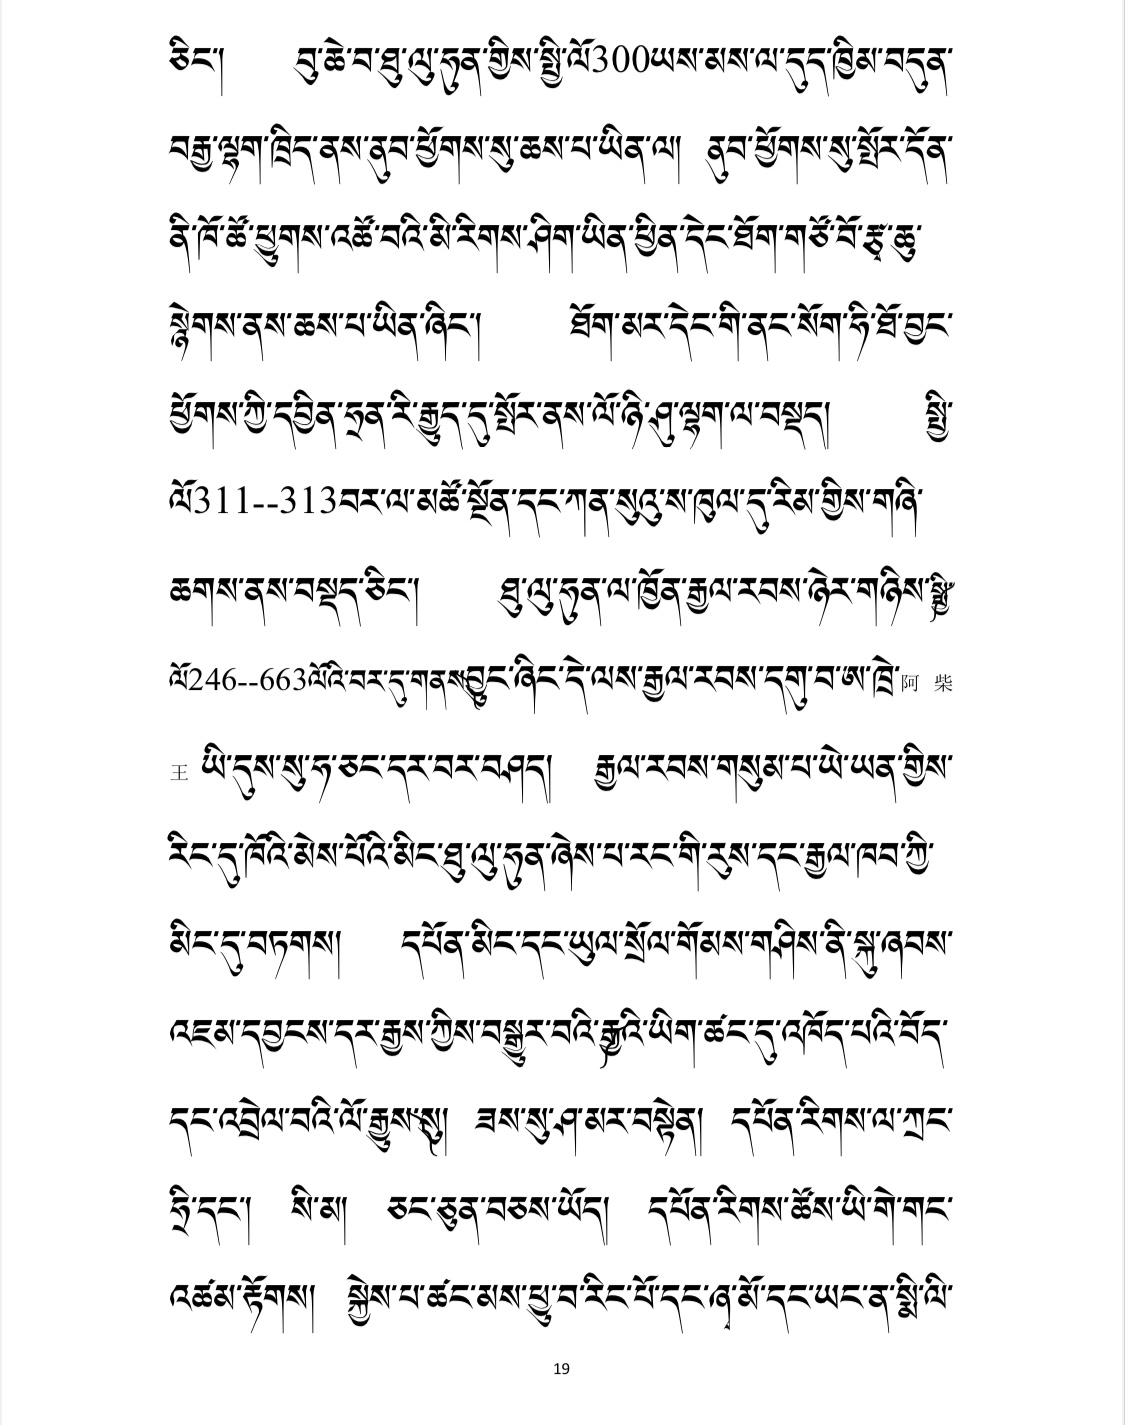 ཅིང་། བུ་ཆེ་བ་ཐུ་ལུ་ཧུན་གྱིས་སྤྱི་ལོ300ཡས་མས་ལ་དུད་ཁྱིམ་བདུན་
བརྒྱ་ལྷག་ཁྲིད་ནས་ནུབ་ཕྱོགས་སུ་ཆས་པ་ཡིན་ལ། ནུབ་ཕྱོགས་སུ་སྤོར་དོན་
ནི་ཁོ་ཚོ་ཕྱུགས་འཚོ་བའི་མི་རིགས་ཤིག་ཡིན་ཕྱིན་དེང་ཐོག་གཙོ་བོ་རྩྭ་ཆུ་
སྙེགས་ནས་ཆས་པ་ཡིན་ཞིང་། ཐོག་མར་དེང་གི་ནང་སོག་ཧེ་ཐོ་བྱང་
ཕྱོགས་ཀྱི་དབྱིན་ཧྲན་རི་རྒྱུད་དུ་སྤོར་ནས་ལོ་ཉི་ཤུ་ལྷག་ལ་བསྡད། སྤྱི་
ལོ311--313བར་ལ་མཚོ་སྔོན་དང་ཀན་སུའུ་ས་ཁུལ་དུ་རིམ་གྱིས་གཞི་
ཆགས་ནས་བསྡད་ཅིང་། ཐུ་ལུ་ཧུན་ལ་ཁྱོན་རྒྱལ་རབས་ཉེར་གཉིས་སྤྱི་
ལོ་246--663ལོའི་བར་དུ་གནས་བྱུང་ཞིང་དེ་ལས་རྒྱལ་རབས་དགུ་བ་ཨ་ཁྲེ་阿 柴
王 ཡི་དུས་སུ་ཧ་ཅང་དར་བར་བཤད། རྒྱལ་རབས་གསུམ་པ་ཡེ་ཡན་གྱིས་
རིང་དུ་ཁོའི་མེས་པོའི་མིང་ཐུ་ལུ་ཧུན་ཞེས་པ་རང་གི་རུས་དང་རྒྱལ་ཁབ་ཀྱི་
མིང་དུ་བཏགས། དཔོན་མིང་དང་ཡུལ་སྲོལ་གོམས་གཤིས་ནི་སྐུ་ཞབས་
འཇམ་དབྱངས་དར་རྒྱས་ཀྱིས་བསྒྱུར་བའི་རྒྱའི་ཡིག་ཚང་དུ་འཁོད་པའི་བོད་
དང་འབྲེལ་བའི་ལོ་རྒྱུས་སུ། ཟས་སུ་ཤ་མར་བསྟེན། དཔོན་རིགས་ལ་ཀྲང་
ཧྲི་དང་། སི་མ། ཅང་ཅུན་བཅས་ཡོད། དཔོན་རིགས་ཚོས་ཡི་གེ་གང་
འཚམ་རྟོགས། སྐྱེས་པ་ཚང་མས་ཕྱུ་བ་རིང་པོ་དང་ཞྭ་མོ་དང་ཡང་ན་སྨྱི་ལི་
19